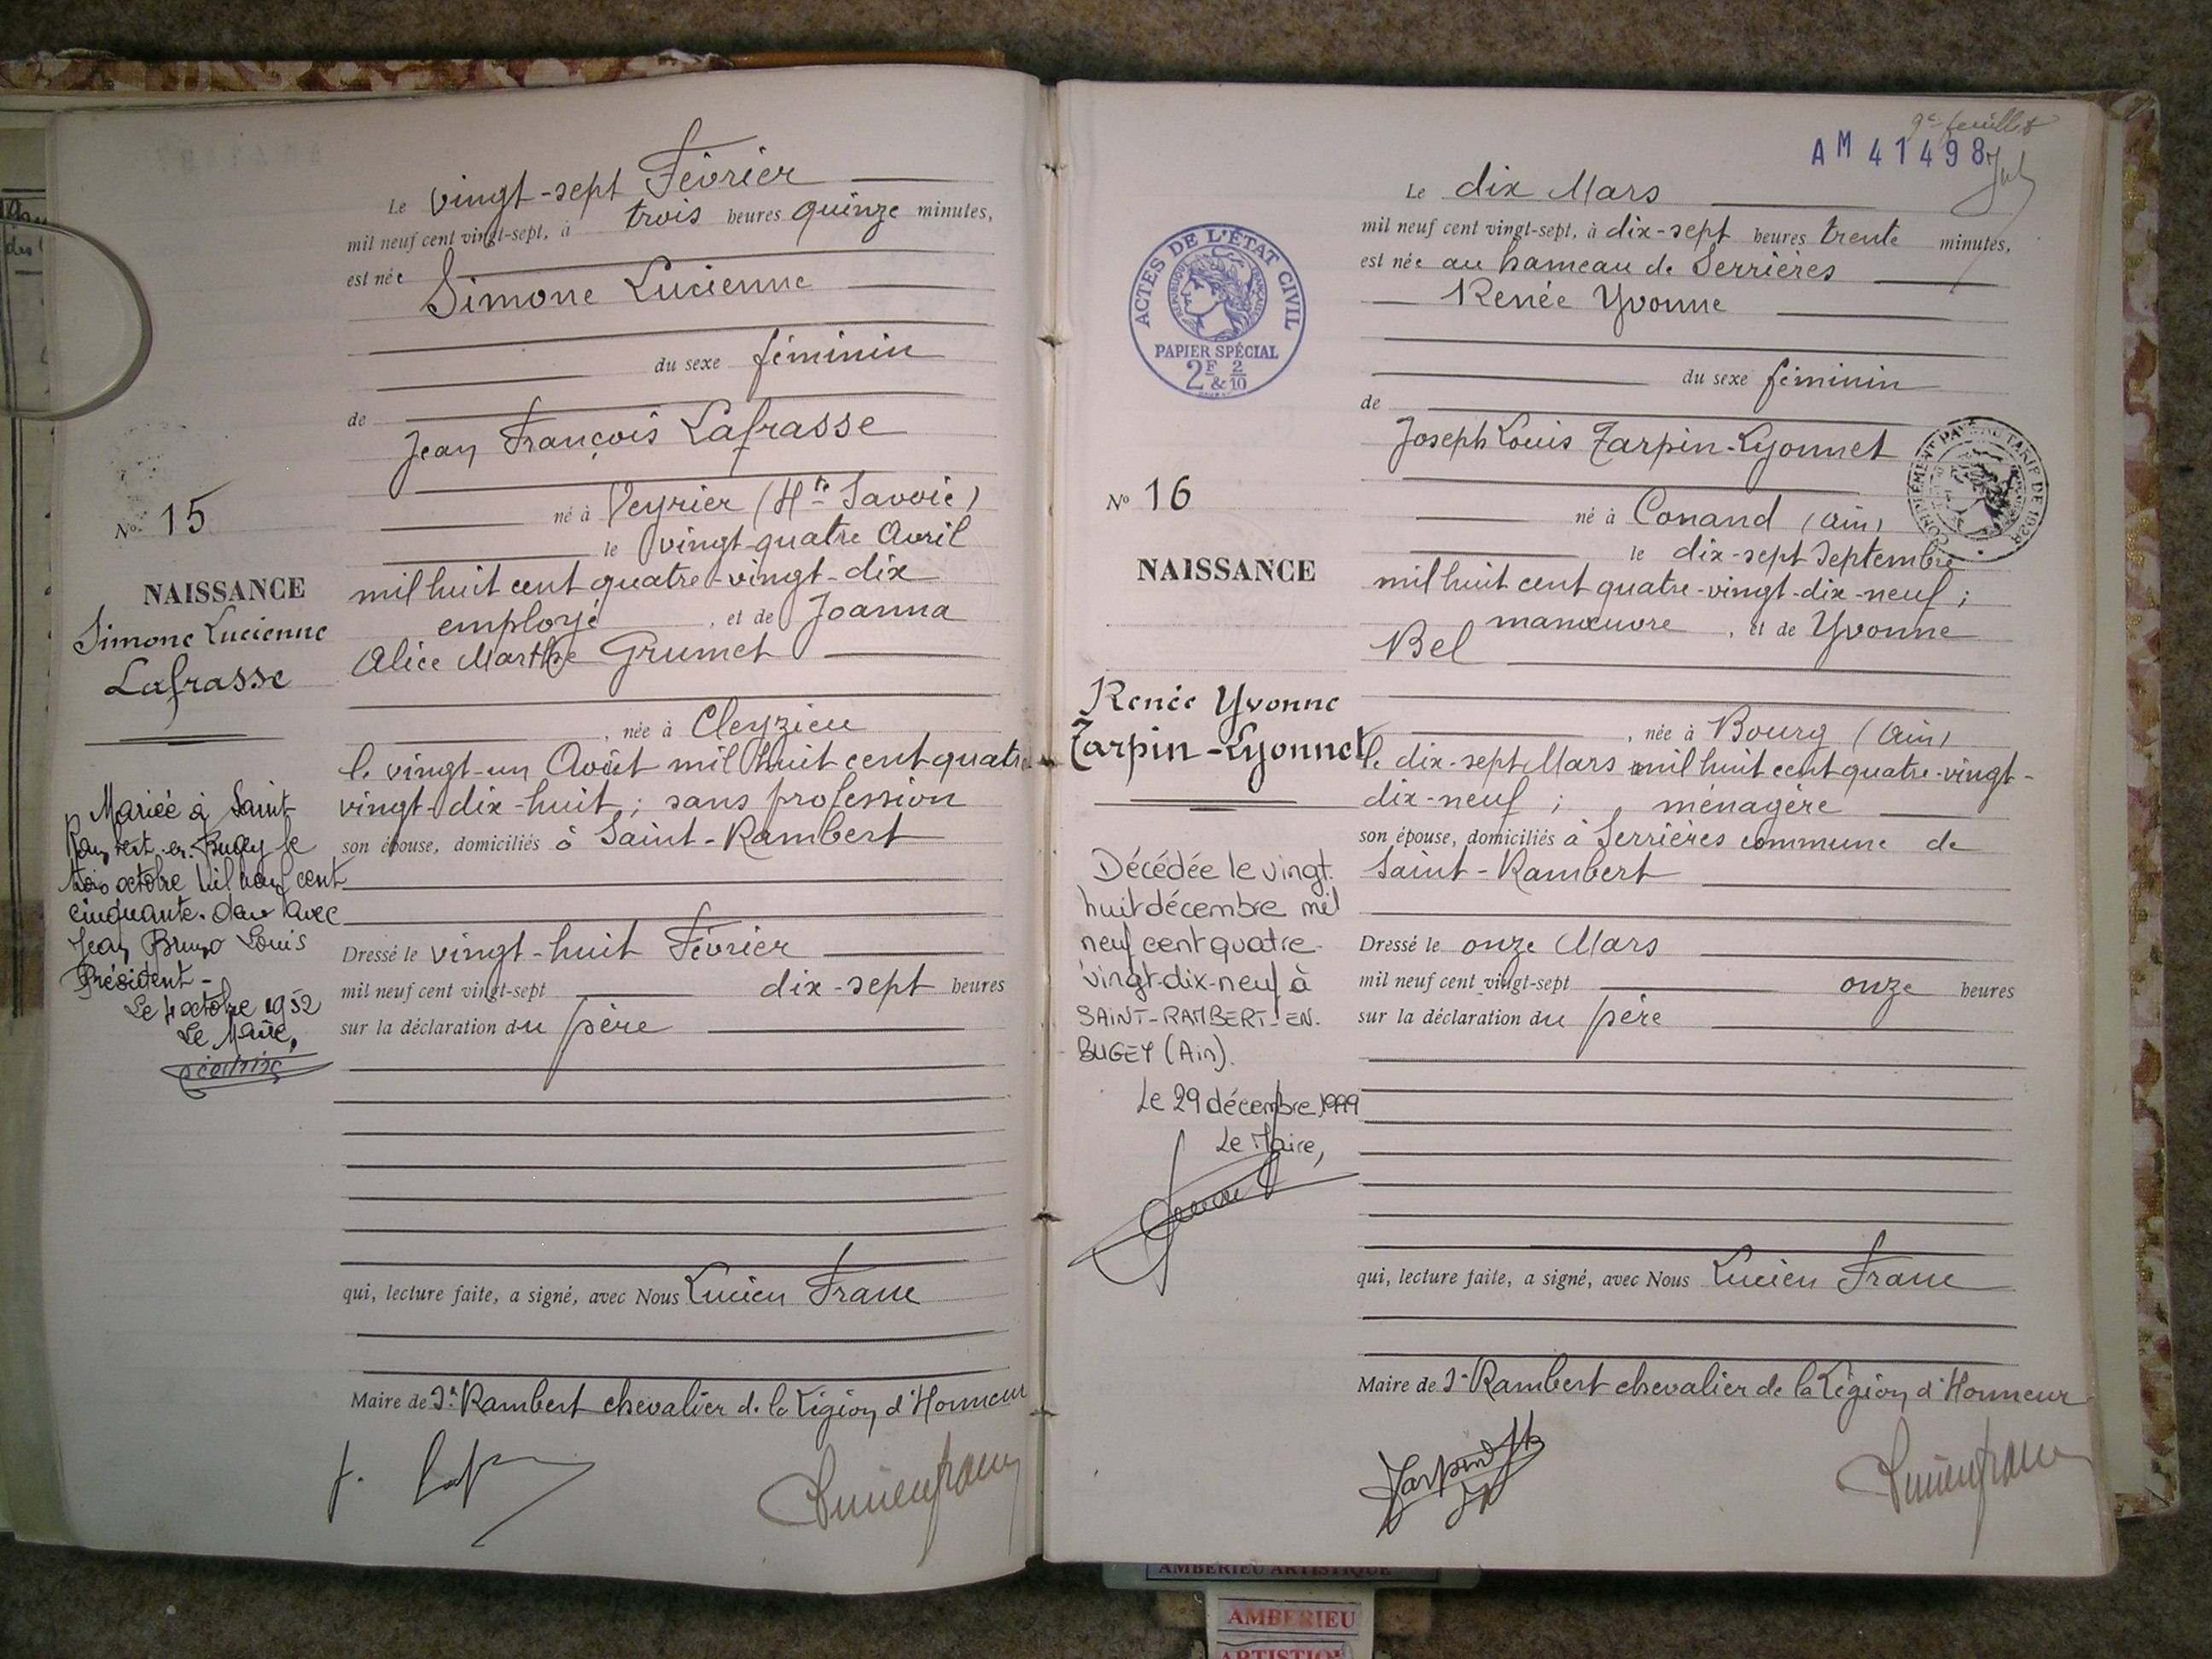 Le vingt-sept Février
mil neuf cent vingt-sept, à trois heures quinze minutes,
est née
Simone Lucienne
du sexe féminin
de
Jean François Lafrasse
né à Veyrier (Hte Savoie)
le vingt-quatre Avril
mil huit cent quatre-vingt-dix
employé, et de Joanna
Alice Marthe Grumet
, née à Cleyzieu
le vingt-un Août mil huit cent quatre
vingt-dix-huit ; sans profession
son épouse, domiciliés à Saint-Rambert
Dressé le vingt-huit Février
mil neuf cent vingt-sept dix-sept heures
sur la déclaration du père
qui, lecture faite, a signé, avec Nous Lucien Franc
Maire de St Rambert chevalier de la Légion d'Honneur
No 15
NAISSANCE
Simone Lucienne
Lafrasse
Mariée à Saint-
Rambert-en-Bugey le
trois octobre mil neuf cent
cinquante-deux avec
Jean Bruno Louis
Président -
Le 4 octobre 1952
Le Maire,
9e feuillet
AM 41498
Le dix Mars
mil neuf cent vingt-sept, à dix-sept heures trente minutes,
est née au hameau de Serrières
Renée Yvonne
du sexe féminin
de
Joseph Louis Tarpin-Lyonnet
né à Conand (Ain)
le dix-sept Septembre
mil huit cent quatre-vingt-dix-neuf ;
manœuvre, et de Yvonne
Bel
, née à Bourg (Ain)
le dix-sept Mars mil huit cent quatre-vingt-
dix-neuf ; ménagère
son épouse, domiciliés à Serrières commune de
Saint-Rambert
Dressé le onze Mars
mil neuf cent vingt-sept onze heures
sur la déclaration du père
qui, lecture faite, a signé, avec Nous Lucien Franc
Maire de St Rambert chevalier de la Légion d'Honneur
ACTES DE L'ÉTAT CIVIL
RÉPUBLIQUE FRANÇAISE
PAPIER SPÉCIAL
2F & 2/10
No 16
NAISSANCE
Renée Yvonne
Tarpin-Lyonnet
Décédée le vingt-
huit décembre mil
neuf cent quatre-
vingt-dix-neuf à
SAINT-RAMBERT-EN-
BUGEY (Ain).
Le 29 décembre 1999
Le Maire,
AMBERIEU ARTISTIQUE
AMBERIEU
ARTISTIQU